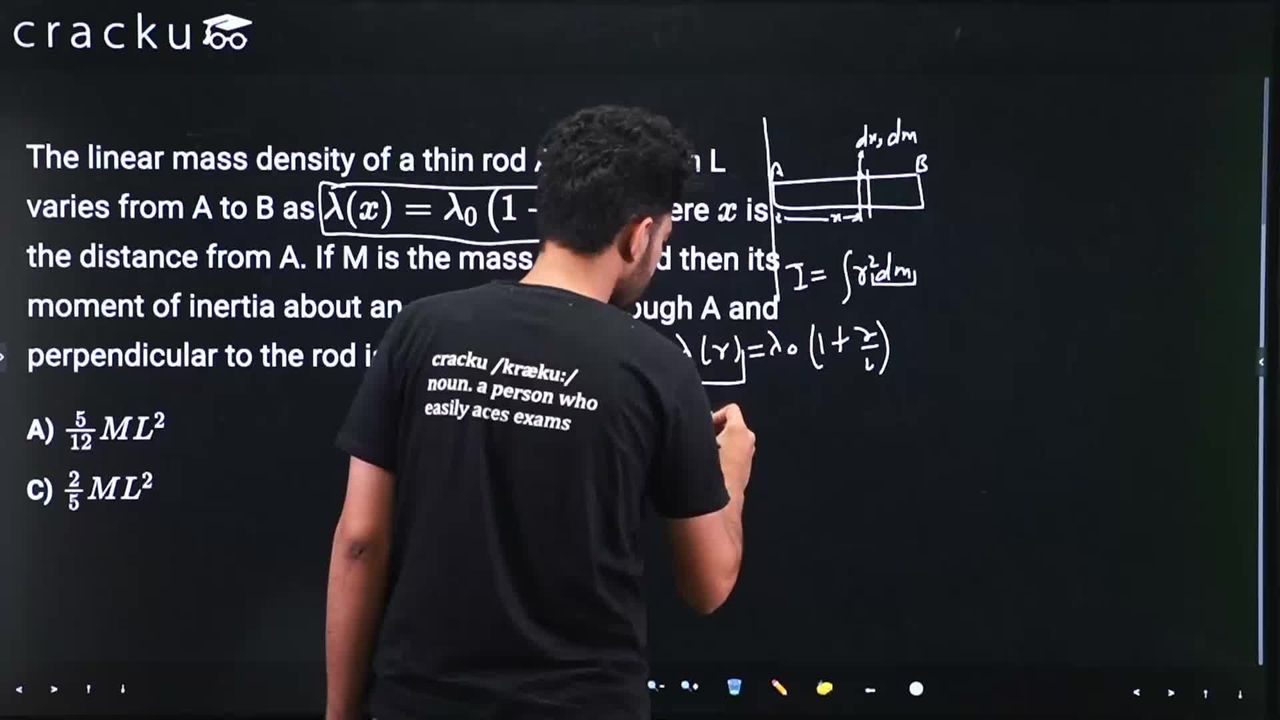 cracku
The linear mass density of a thin rod L
varies from A to B as λ(x) = λ₀ (1 x is
the distance from A. If M is the mass then its
moment of inertia about an A and
perpendicular to the rod
A) 5/12 ML²
C) 2/5 ML²
dx, dm
A B
x
I = ∫r²dm
λ(x) = λ₀ (1 + x/L)
cracku /kræku:/
noun. a person who
easily aces exams